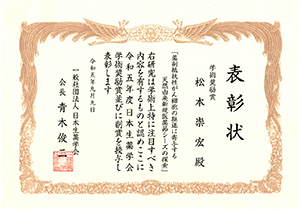 表彰状
学術奨励賞
松木崇宏殿
「薬剤抵抗性がん細胞の駆逐に寄与する
天然由来新規医薬品シーズの探索」
右研究は学術上特に注目すべき
内容を有するものと認めここに
令和五年度日本生薬学会
学術奨励賞並びに副賞を授与し
表彰します
令和五年九月九日
一般社団法人日本生薬学会
会長 青木俊二